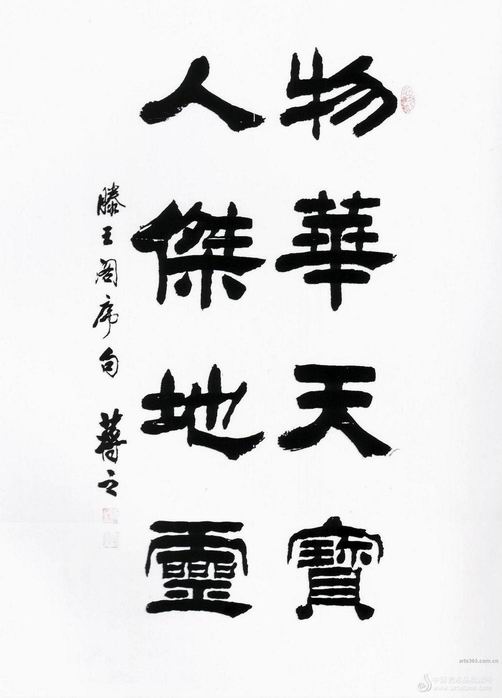 物華天寶
人傑地靈
滕王阁序句
arts365.com.cn